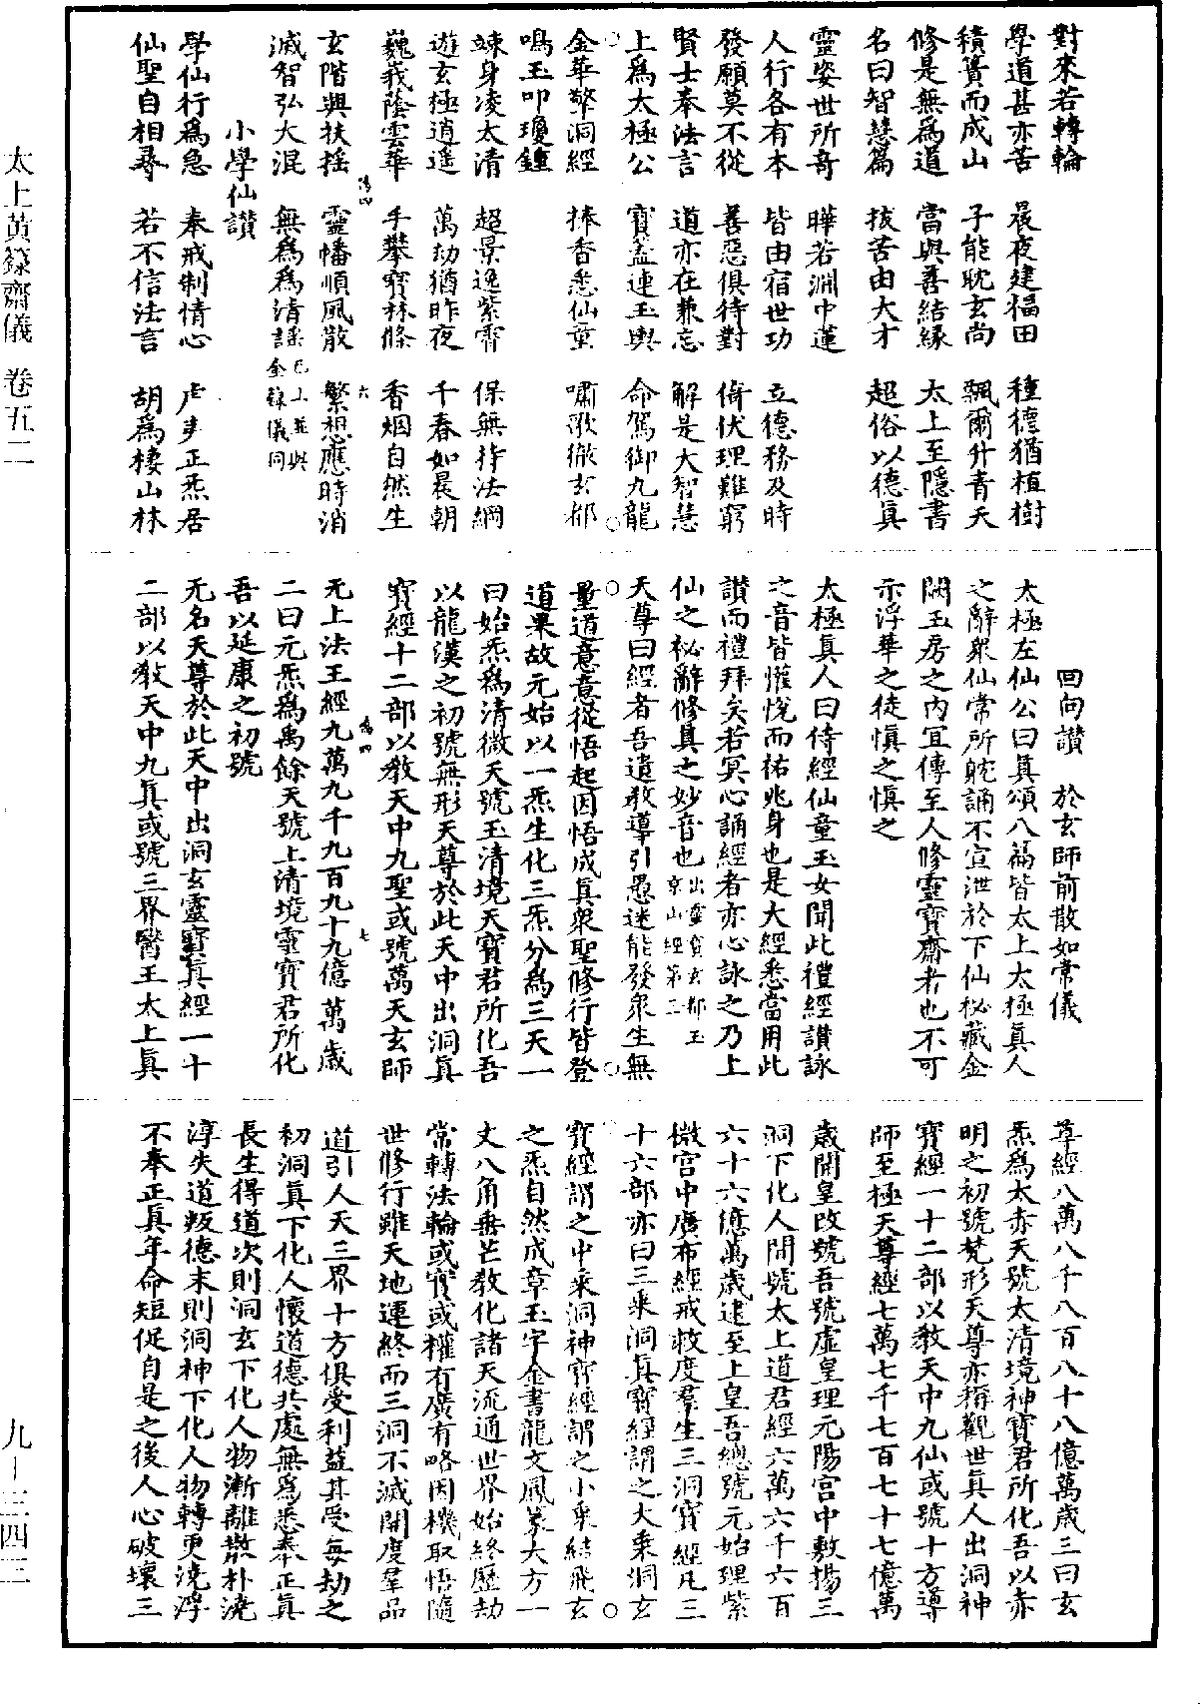 對來若轉輪
學道甚亦苦　晨夜建福田　種德猶植樹
積簣而成山　子能耽玄尚　飄爾升青天
修是無為道　當與善結緣　太上至隱書
名曰智慧篇　拔苦由大才　超俗以德眞
靈姿世所奇　曄若淵中蓮
人行各有本　皆由宿世功　立德務及時
發願莫不從　善惡俱待對　倚伏理難窮
賢士奉法言　道亦在兼忘　解是大智慧
上爲太極公　寶蓋連玉輿　命駕御九龍
金華擎洞經　捧香悉仙童　嘯歌徹玄都
鳴玉叩瓊鍾
竦身凌太清　超景逸紫霄　保無持法綱
遊玄極逍遥　萬劫猶昨夜　千春如晨朝
巍峩蔭雲華　手攀寶林條　香烟自然生
玄階與扶搖　靈幡順風散　繁想應時消
滅智弘大混　無爲爲清謡　已上並與金籙儀同
小學仙讃
學仙行爲急　奉戒制情心　虛夷正炁居
仙聖自相尋　若不信法言　胡爲棲山林
回向讃　於玄師前散如常儀
太極左仙公曰眞頌八篇皆太上太極眞人
之辭衆仙常所躭誦不宣泄於下仙秘藏金
闕玉房之內宜傳至人修靈寶齋者也不可
示浮華之徒愼之愼之
太極眞人曰侍經仙童玉女聞此禮經讃詠
之音皆懽悅而祐兆身也是大經悉當用此
讃而禮拜矣若冥心誦經者亦心詠之乃上
仙之秘辭修眞之妙音也 出靈寶玄都玉京山經第二
天尊曰經者吾遺敎導引愚迷能發衆生無
量道意意從悟起因悟成眞衆聖修行皆登
道果故元始以一炁生化三炁分爲三天一
曰始炁爲清微天號玉清境天寶君所化吾
以龍漢之初號無形天尊於此天中出洞眞
寶經十二部以敎天中九聖或號萬天玄師
无上法王經九萬九千九百九十九億萬歲
二曰元炁爲禹餘天號上清境靈寶君所化
吾以延康之初號
无名天尊於此天中出洞玄靈寶眞經一十
二部以敎天中九眞或號三界醫王太上眞
尊經八萬八千八百八十八億萬歲三曰玄
炁爲太赤天號太清境神寶君所化吾以赤
明之初號梵形天尊亦稱觀世眞人出洞神
寶經一十二部以敎天中九仙或號十方導
師至極天尊經七萬七千七百七十七億萬
歲開皇改號吾號虛皇理元陽宮中敷揚三
洞下化人間號太上道君經六萬六千六百
六十六億萬歲逮至上皇吾總號元始理紫
微宮中廣布經戒救度羣生三洞寶經凡三
十六部亦曰三乘洞眞寶經謂之大乘洞玄
寶經謂之中乘洞神寶經謂之小乘結飛玄
之炁自然成章玉字金書龍文鳳篆大方一
丈八角垂芒敎化諸天流通世界始終歷劫
常轉法輪或實或權有廣有略因機取悟隨
世修行雖天地運終而三洞不滅開度羣品
道引人天三界十方俱受利益其受每劫之
初洞眞下化人懷道德共處無爲悉奉正眞
長生得道次則洞玄下化人物漸離散朴澆
淳失道叛德末則洞神下化人物轉更澆浮
不奉正眞年命短促自是之後人心破壞三
太上黃籙齋儀　卷五二
九—三四三